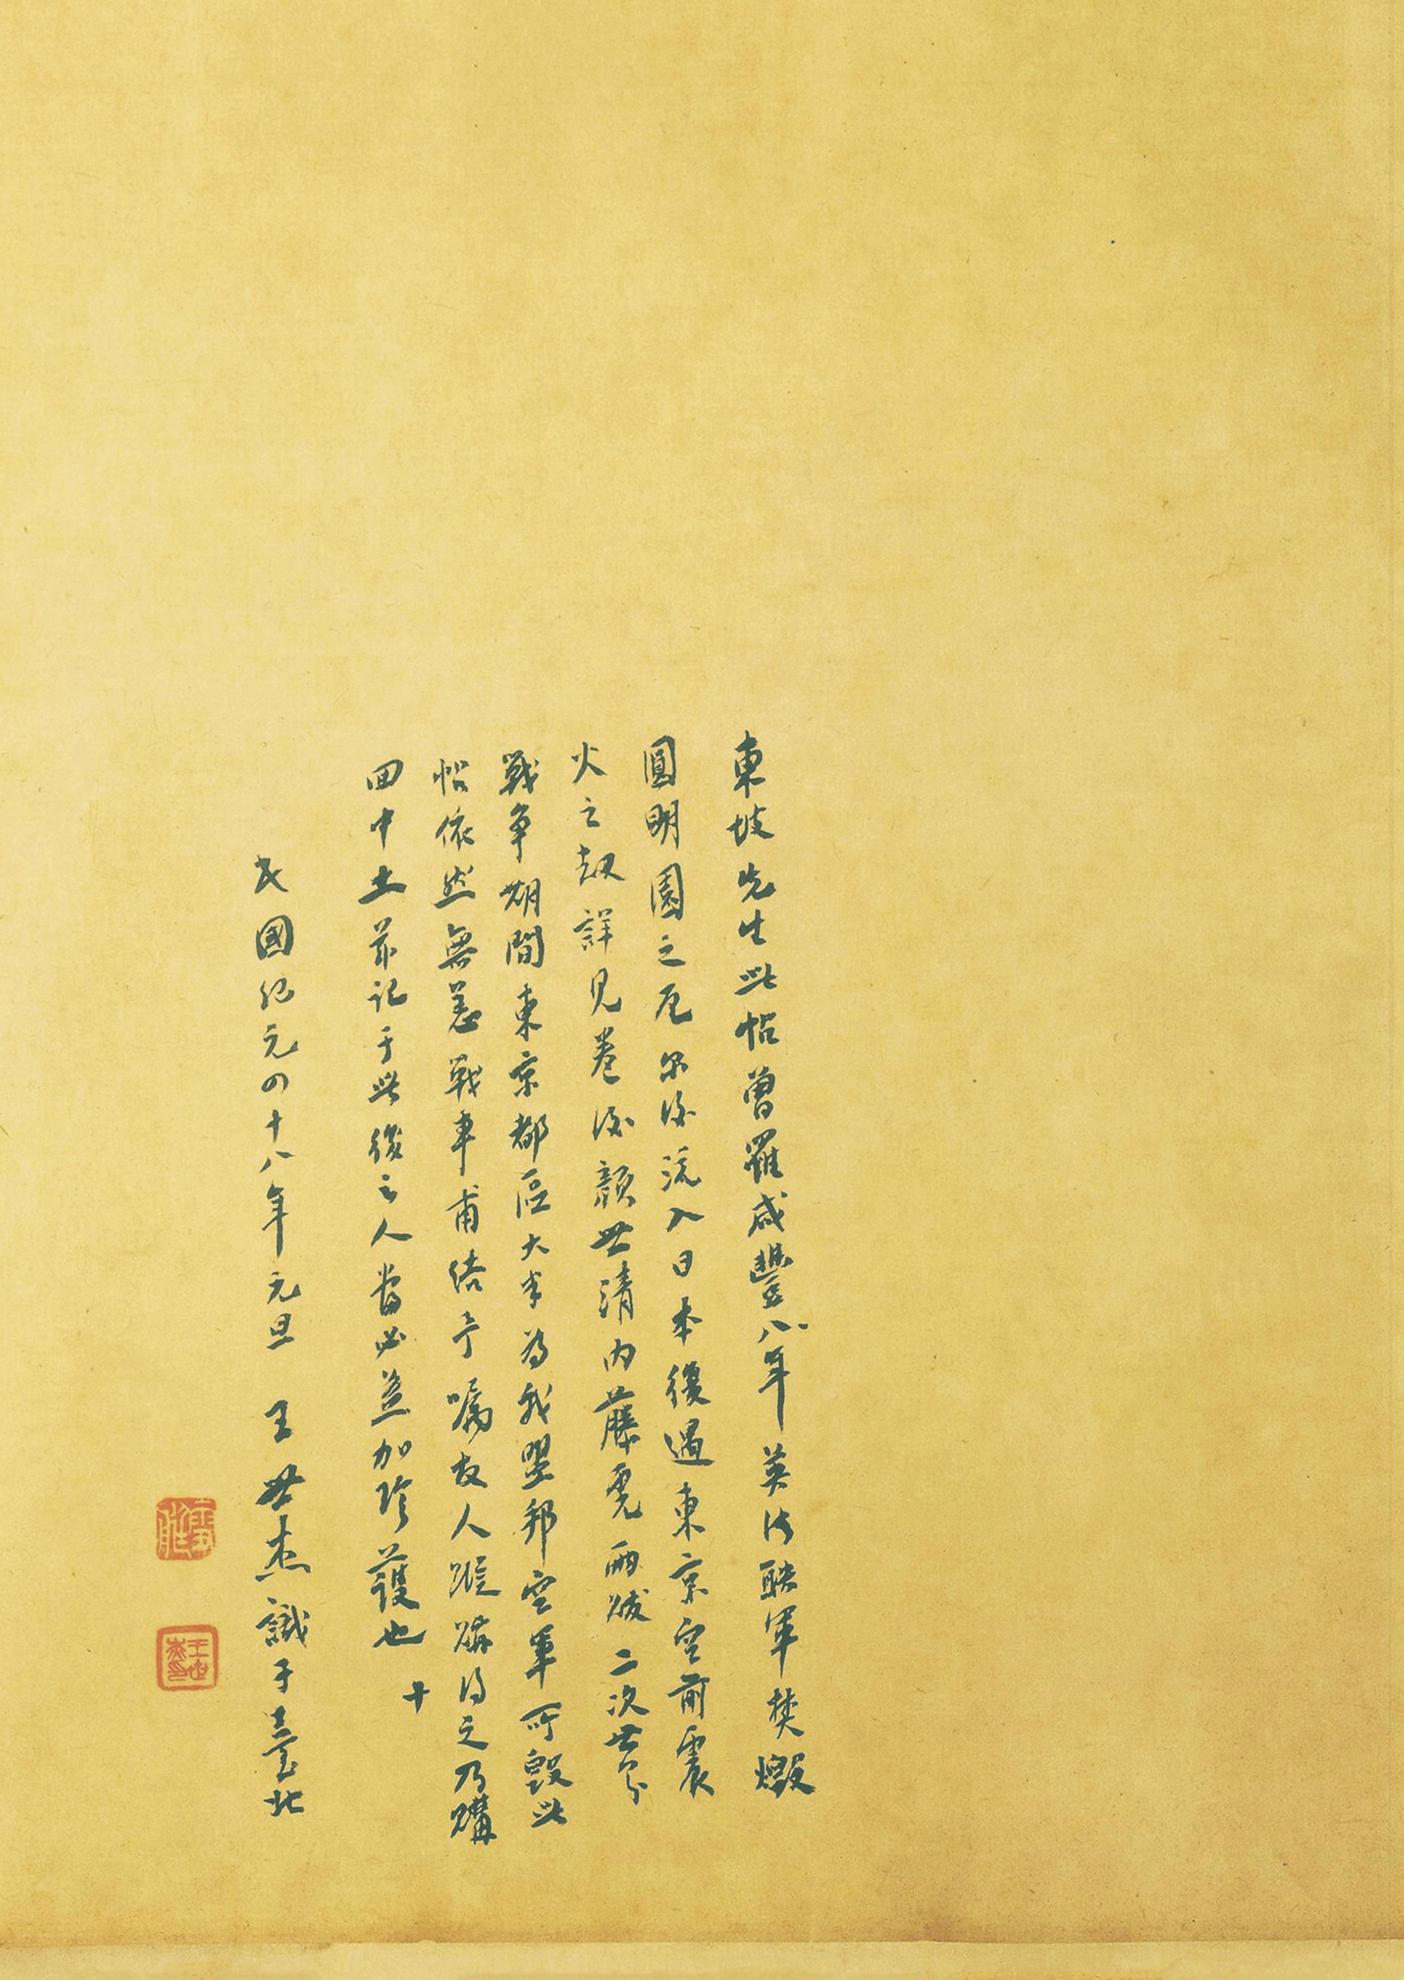 東坡先生此帖曾罹咸豐八年英法聯軍焚燬
圓明園之厄尔後流入日本復遇東京空前震
火之劫詳見卷後顏世清內藤虎兩跋二次世界
戰爭期間東京都區大半為我盟邦空軍所毀此
帖依然無恙戰事甫結予囑友人蹤跡得之乃購
回中土茲記于此後之人當必益加珍護也十
民國紀元四十八年元旦 王世杰識于臺北
王世杰印